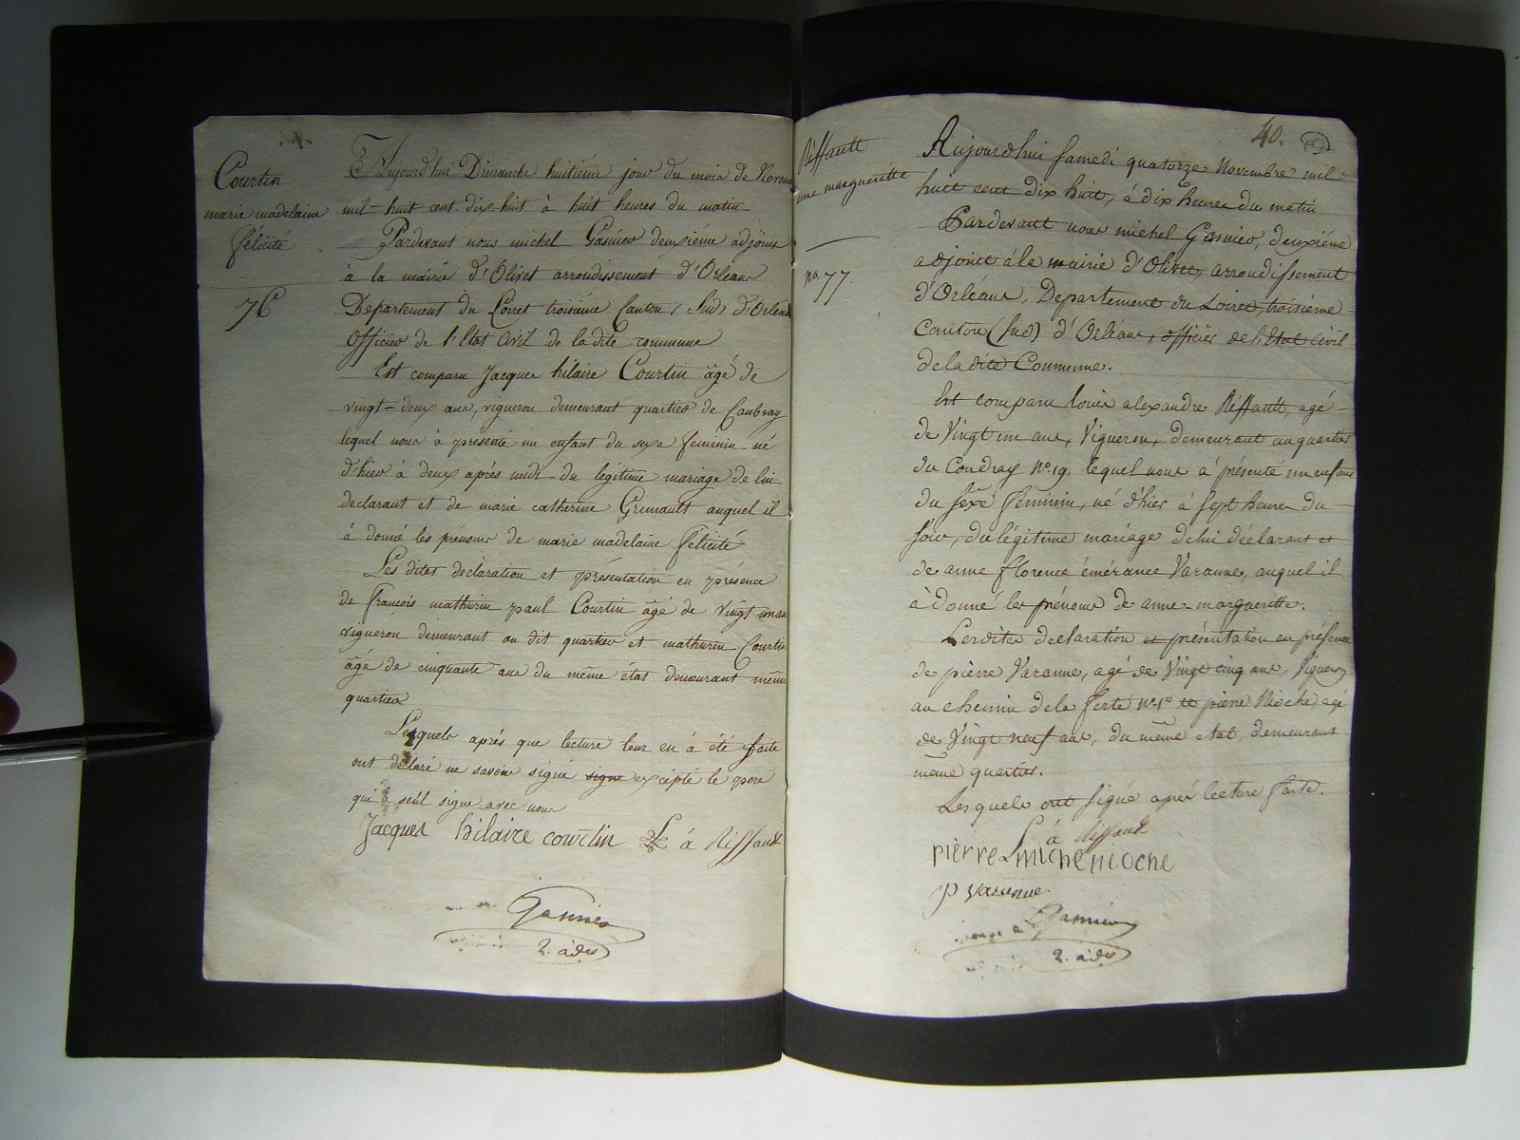 Courtin
marie madelaine
félicité
76
Aujourd'hui Dimanche huitième jour du mois de Novem
mil huit cent dix huit à huit heures du matin
Pardevant nous michel Gasnier deuxième adjoint
à la mairie d'Olivet arrondissement d'Orléans
Département du Loiret troisième Canton (Sud) d'Orléans
Officier de l'Etat Civil de la dite commune
Est comparu Jacques hilaire Courtin âgé de
vingt-deux ans, vigneron demeurant quartier de
lequel nous à présenté un enfant du sexe feminin né
d'hier à deux après midi du légitime mariage de lui
declarant et de marie catherine auquel il
à donné les prénoms de marie madelaine félicité
Les dites declaration et présentation en présence
de françois mathurin paul Courtin âgé de vingt un ans
vigneron demeurant au dit quartier et mathurin Courtin
âgé de cinquante ans du même état demeurant même
quartier
Lesquels après que lecture leur en à été faite
ont déclaré ne savoir signé signe excipté le père
qui à seul signé avec nous
Jacques hilaire courtin L á Riffault
Gasnier
2. adj
40.
Riffault
anne marguerette
no. 77
Aujourdhui samedi quatorze Novembre mil
huit cent dix huit, à dix heures du matin
Pardevant nous michel Gasnier, deuxiéme
adjoint à la mairie d'Olivet, arrondissement
d'Orléans, Departement du Loiret, troisiéme
Canton (Sud) d'Orléans, officier de l'Etat Civil
de la dite Commune.
Est comparu louis alexandre Riffault, agé
de Vingt un ans, Vigneron, demeurant au quartier
du Coudray No. 19. lequel nous à présenté un enfant
du sexe Feminin, né d'hier à sept heures du
soir, du légitime mariage de lui déclarant et
de anne florence émérance Varanne, auquel il
à donné les prénoms de anne-marguerette.
Lesdites declaration et présentation en présence
de pierre Varanne, agé de Vingt cinq ans, Vigneron
au chemin de la ferte et pierre Nioche, agé
de Vingt neuf ans, du même etat, demeurant
même quartier.
Lesquels ont signé aprés lecture faite.
L á Riffault
Pierre michenioche
p varenne
Gasnier
2. adj